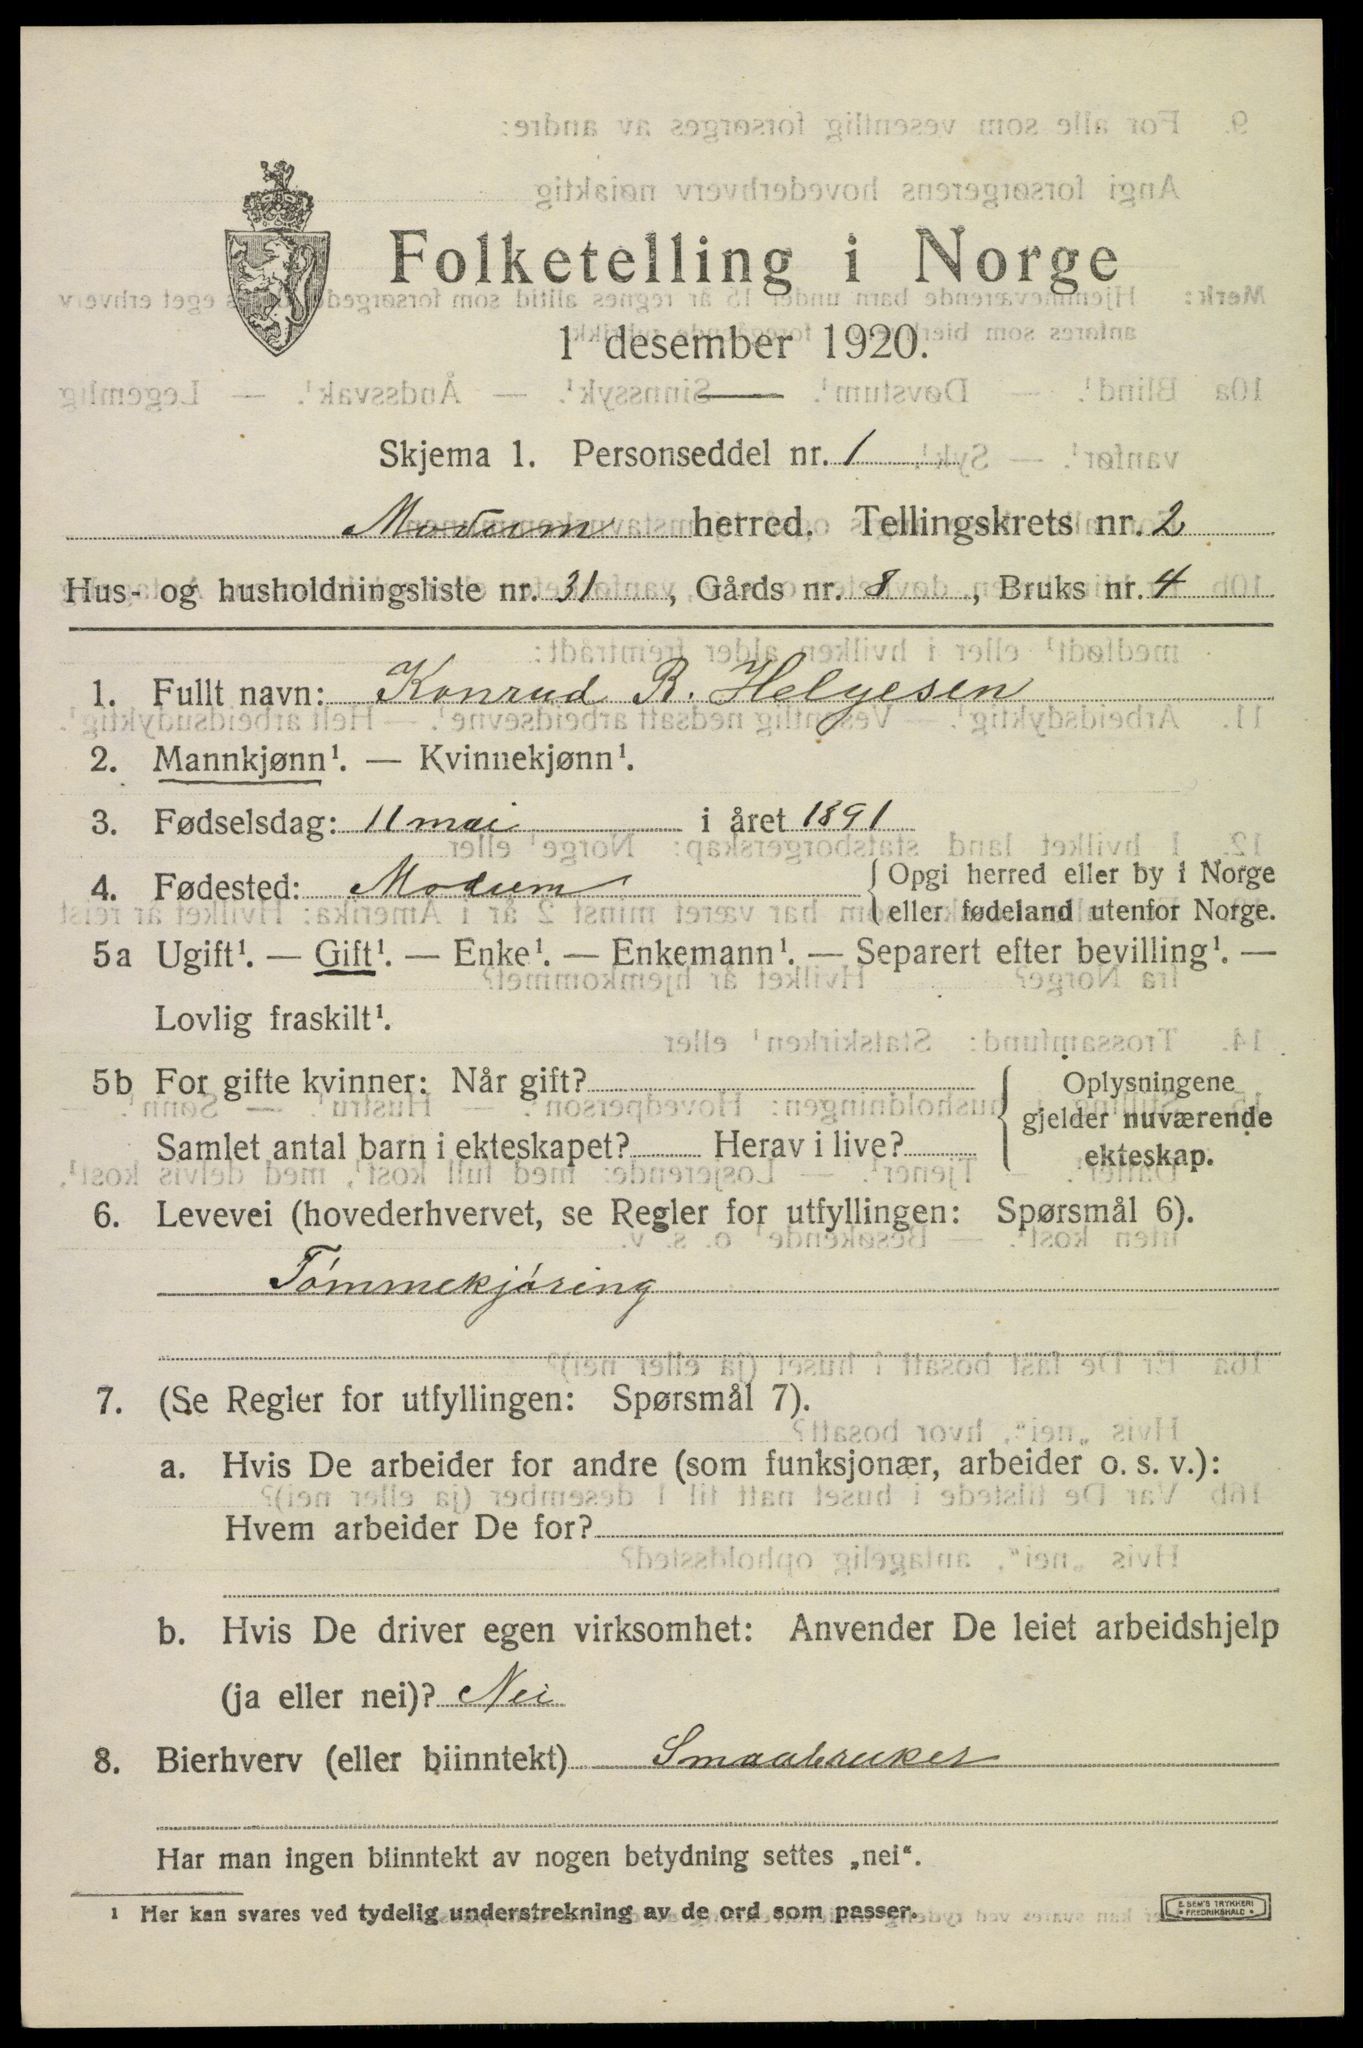 Folketelling i Norge
1 desember 1920.
Skjema 1. Personseddel nr. 1
Modum herred. Tellingskrets nr. 2
Hus- og husholdningsliste nr. 31, Gårds nr. 8, Bruks nr. 4
1. Fullt navn: Konrad B. Helgesen
2. Mannkjønn¹. — Kvinnekjønn¹.
3. Fødselsdag: 11 mai i året 1891
4. Fødested: Modum { Opgi herred eller by i Norge
eller fødeland utenfor Norge.
5a Ugift¹. — Gift¹. — Enke¹. — Enkemann¹. — Separert efter bevilling¹. —
Lovlig fraskilt¹.
5b For gifte kvinner: Når gift?
Samlet antal barn i ekteskapet? Herav i live?
Oplysningene
gjelder nuværende
ekteskap.
6. Levevei (hovederhvervet, se Regler for utfyllingen: Spørsmål 6).
Tómmekjóring
7. (Se Regler for utfyllingen: Spørsmål 7).
a. Hvis De arbeider for andre (som funksjonær, arbeider o. s. v.):
Hvem arbeider De for?
b. Hvis De driver egen virksomhet: Anvender De leiet arbeidshjelp
(ja eller nei)? Nei
8. Bierhverv (eller biinntekt) Smaabruker
Har man ingen biinntekt av nogen betydning settes „nei“.
¹ Her kan svares ved tydelig understrekning av de ord som passer.
E. SEM'S TRYKKERI
FREDRIKSHALD